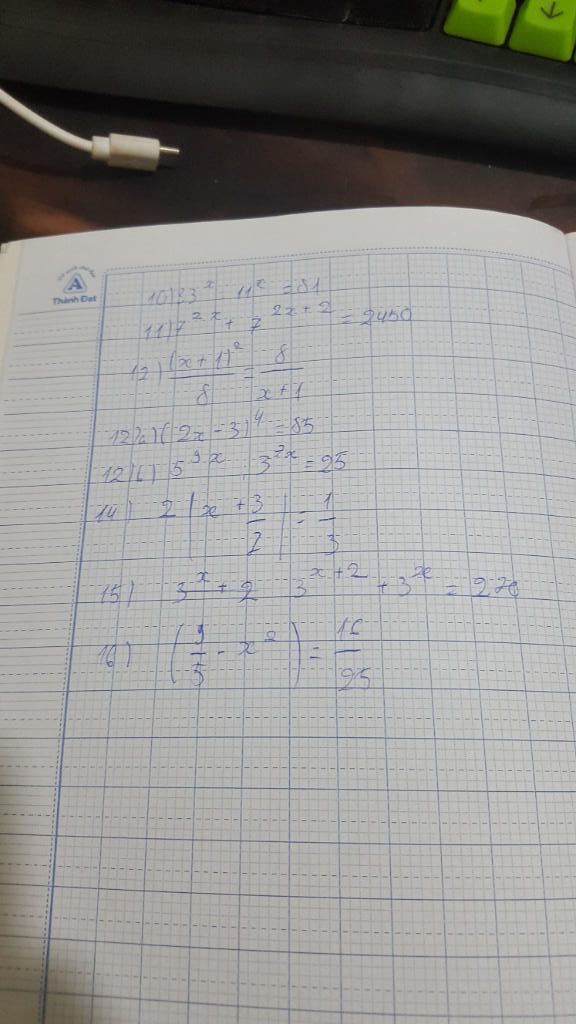 Thành Đạt
10) 33^x : 11^x = 81
11) 7^{2x} + 7^{2x+2} = 2450
12) (x+1)^2 / 8 = 8 / (x+1)
12)a) (2x-3)^4 = 85
12)b) 5^{9x} : 3^{2x} = 25
14) 2 |x + 3/2| = 1/3
15) 3^{x+2} 3^{x+2} + 3^x = 270
16) (9/5 - x^2) = 16/25